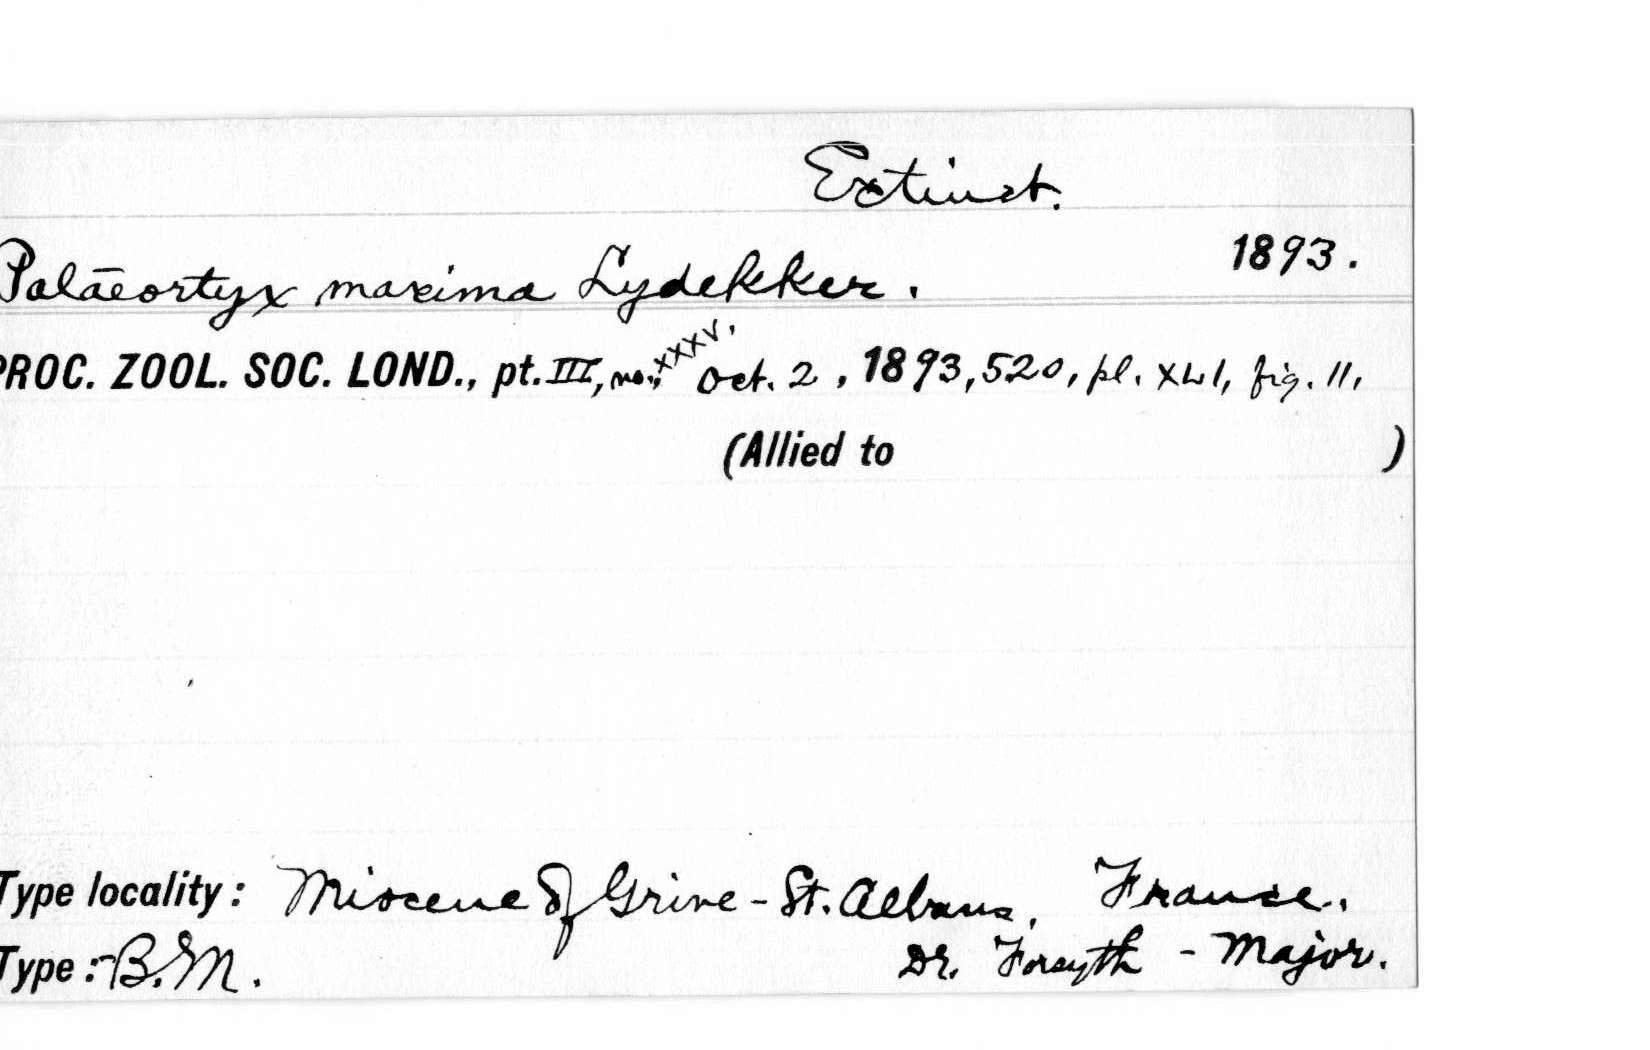 Extinct.
1893.
Palaeortyx maxima Lydekker.
PROC. ZOOL. SOC. LOND., pt. III, no. XXXV, Oct. 2, 1893, 520, pl. XLI, fig. 11,
(Allied to )
Type locality: Miocene of Grive-St. Albans, France.
Type:- B.M. Dr. Forsyth-Major.